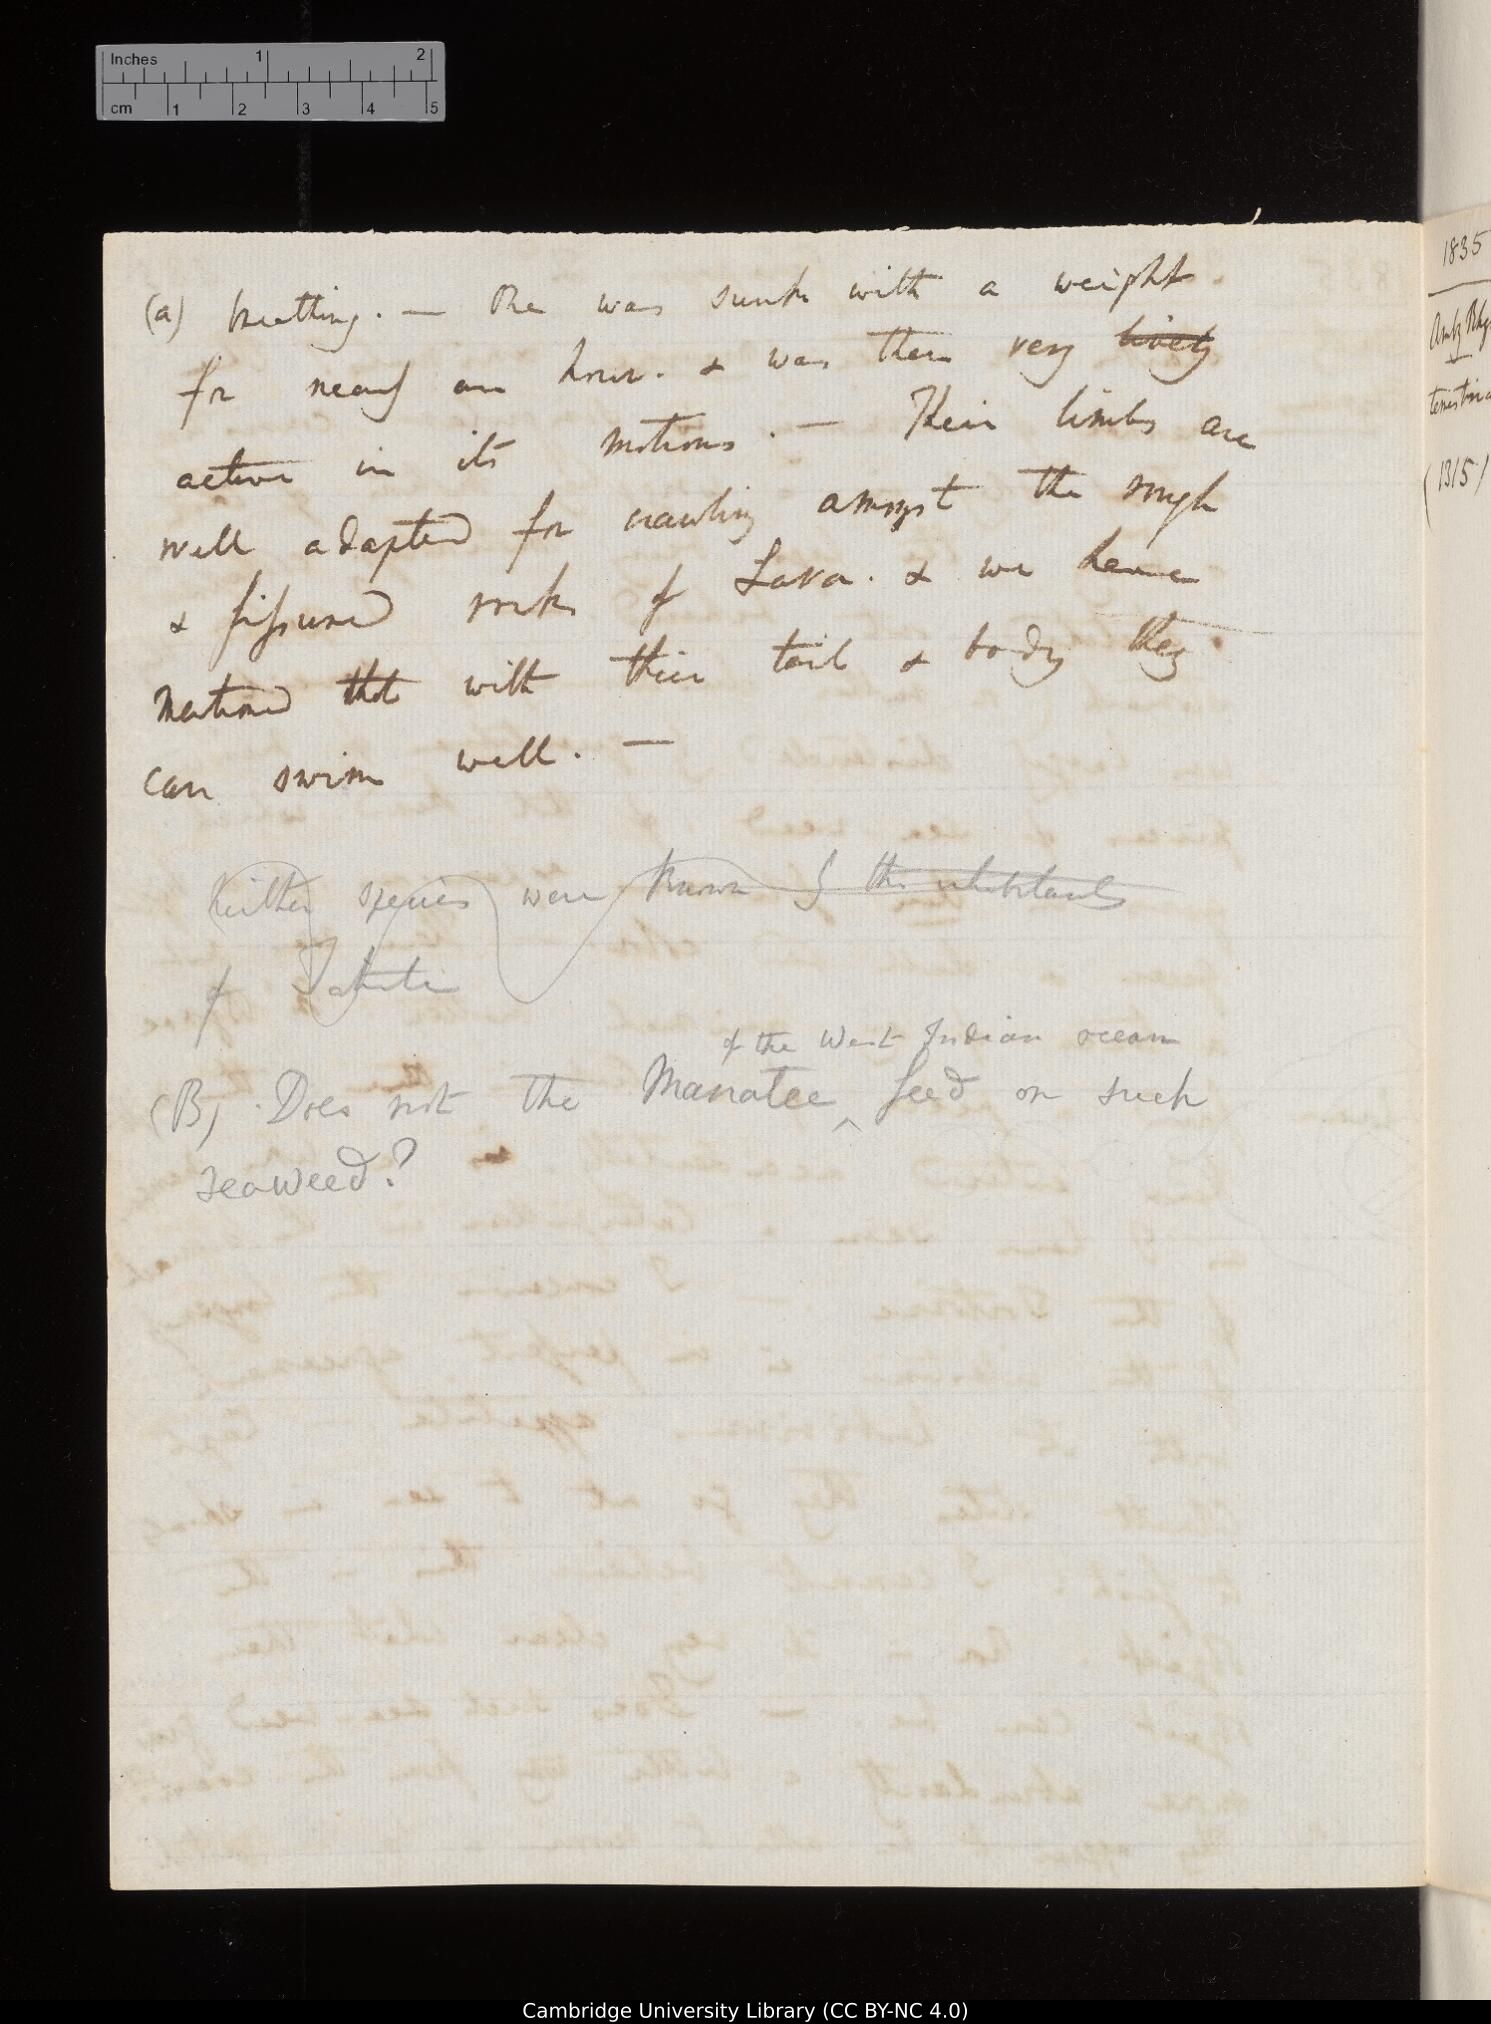 Inches 1 2
cm 1 2 3 4 5
1835
(1315)
(a) breathing. — One was sunk with a weight
for nearly an hour. & was then very lively
active in its motions. — Their limbs are
well adapted for crawling amongst the rough
& fissured rocks of Lava. & we have
mentioned that with their tail & body they
can swim well. —
Neither species were known of the inhabitants
of Tahiti
of the West Indian ocean
(B) Does not the Manatee ^ feed on such
seaweed?
Cambridge University Library (CC BY-NC 4.0)